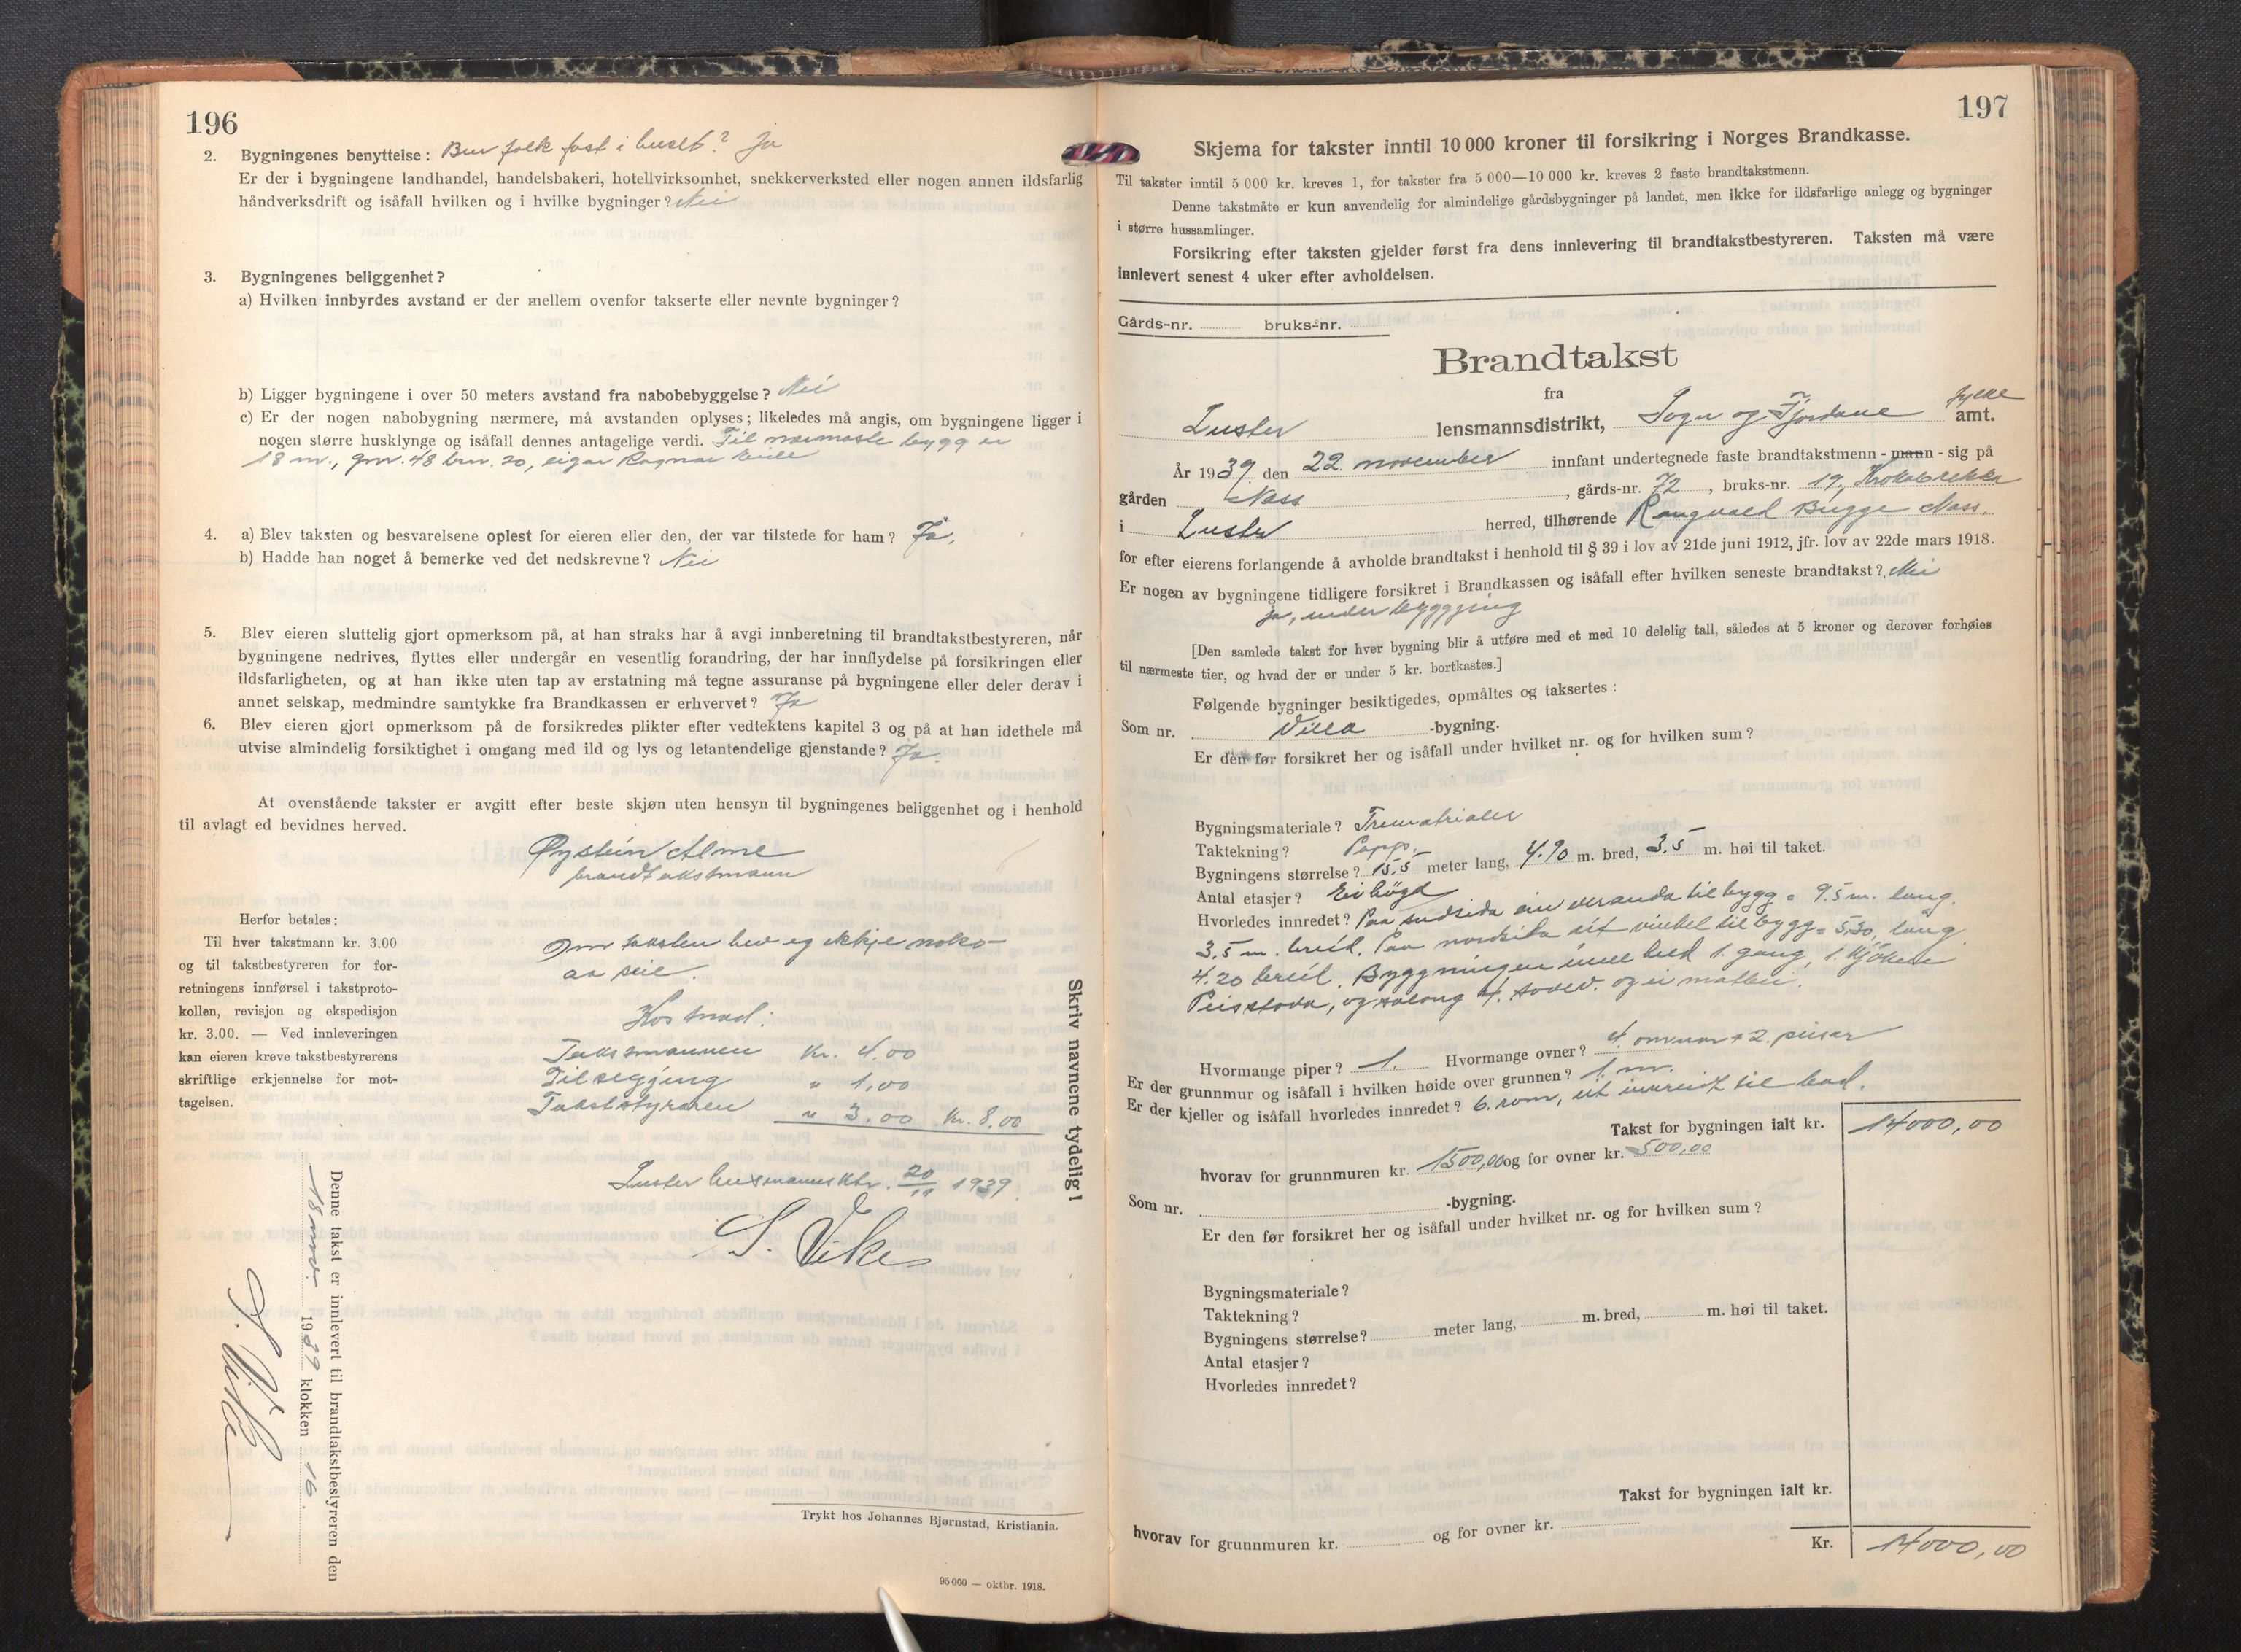 196
2. Bygningenes benyttelse: Bur folk fast i huset? Ja
Er der i bygningene landhandel, handelsbakeri, hotellvirksomhet, snekkerverksted eller nogen annen ildsfarlig
håndverksdrift og isåfall hvilken og i hvilke bygninger? Nei
3. Bygningenes beliggenhet?
a) Hvilken innbyrdes avstand er der mellem ovenfor takserte eller nevnte bygninger?
b) Ligger bygningene i over 50 meters avstand fra nabobebyggelse? Nei
c) Er der nogen nabobygning nærmere, må avstanden oplyses; likeledes må angis, om bygningene ligger i
nogen større husklynge og isåfall dennes antagelige verdi. Til nærmaste bygg er
18 m., gnr. 48 brn. 20, eigar Ragnar
4. a) Blev taksten og besvarelsene oplest for eieren eller den, der var tilstede for ham? Ja,
b) Hadde han noget å bemerke ved det nedskrevne? Nei
5. Blev eieren sluttelig gjort opmerksom på, at han straks har å avgi innberetning til brandtakstbestyreren, når
bygningene nedrives, flyttes eller undergår en vesentlig forandring, der har innflydelse på forsikringen eller
ildsfarligheten, og at han ikke uten tap av erstatning må tegne assuranse på bygningene eller deler derav i
annet selskap, medmindre samtykke fra Brandkassen er erhvervet? Ja
6. Blev eieren gjort opmerksom på de forsikredes plikter efter vedtektens kapitel 3 og på at han idethele må
utvise almindelig forsiktighet i omgang med ild og lys og letantendelige gjenstande? Ja.
At ovenstående takster er avgitt efter beste skjøn uten hensyn til bygningenes beliggenhet og i henhold
til avlagt ed bevidnes herved.
Øystein Alme
brandtakstmann
Herfor betales:
Til hver takstmann kr. 3.00
og til takstbestyreren for for-
retningens innførsel i takstproto-
kollen, revisjon og ekspedisjon
kr. 3.00. — Ved innleveringen
kan eieren kreve takstbestyrerens
skriftlige erkjennelse for mot-
tagelsen.
Om taksten hev eg ikkje noko
aa seie.
Kostnad:
Taksmannen Kr. 4.00
Tilsegjing " 1,00
Takststyraren " 3.00 Kr. 8,00
Luster lensmannsktr. 20/11 1939.
S. Vike
Skriv navnene tydelig!
Denne takst er innlevert til brandtakstbestyreren den
18 nov. 1939 klokken 16
S. Vike
Trykt hos Johannes Bjørnstad, Kristiania.
95 000 — oktbr. 1918.
197
Skjema for takster inntil 10 000 kroner til forsikring i Norges Brandkasse.
Til takster inntil 5 000 kr. kreves 1, for takster fra 5 000—10 000 kr. kreves 2 faste brandtakstmenn.
Denne takstmåte er kun anvendelig for almindelige gårdsbygninger på landet, men ikke for ildsfarlige anlegg og bygninger
i større hussamlinger.
Forsikring efter taksten gjelder først fra dens innlevering til brandtakstbestyreren. Taksten må være
innlevert senest 4 uker efter avholdelsen.
Gårds-nr. bruks-nr.
Brandtakst
fra
Luster lensmannsdistrikt, Sogn og Fjordane fylke amt.
År 1939 den 22. november innfant undertegnede faste brandtakstmenn - mann - sig på
gården Nass, gårds-nr. 72, bruks-nr. 19, Krokabrekka
i Luster herred, tilhørende Rangvald Bugge Nass.
for efter eierens forlangende å avholde brandtakst i henhold til § 39 i lov av 21de juni 1912, jfr. lov av 22de mars 1918.
Er nogen av bygningene tidligere forsikret i Brandkassen og isåfall efter hvilken seneste brandtakst? Nei
ja, under byggjing
[Den samlede takst for hver bygning blir å utføre med et med 10 delelig tall, således at 5 kroner og derover forhøies
til nærmeste tier, og hvad der er under 5 kr. bortkastes.]
Følgende bygninger besiktigedes, opmåltes og taksertes:
Som nr. Villa -bygning.
Er den før forsikret her og isåfall under hvilket nr. og for hvilken sum?
Bygningsmateriale? Trematrialer
Taktekning? Papp.
Bygningens størrelse? 15,5 meter lang, 4.90 m. bred, 3.5 m. høi til taket.
Antal etasjer? Ei høgd
Hvorledes innredet? Paa sudsida ein veranda tilbygg = 9.5 m. lang.
3.5 m. breid. Paa nordsida eit vinkel tilbygg = 5,30, lang
4.20 breid. Byggningen inne held 1. gang, 1. Kjöken
Peisstova, og salong 4. sovev. og ei matbu.
Hvormange piper? 1. Hvormange ovner? 4. omnar + 2. peisar
Er der grunnmur og isåfall i hvilken høide over grunnen? 1. m.
Er der kjeller og isåfall hvorledes innredet? 6. rom, eit innreidt til bad.
Takst for bygningen ialt kr. 14000,00
hvorav for grunnmuren kr. 1500,00 og for ovner kr. 500,00
Som nr. -bygning.
Er den før forsikret her og isåfall under hvilket nr. og for hvilken sum?
Bygningsmateriale?
Taktekning?
Bygningens størrelse? meter lang, m. bred, m. høi til taket.
Antal etasjer?
Hvorledes innredet?
Takst for bygningen ialt kr.
hvorav for grunnmuren kr. og for ovner kr.
Kr. 14000,00